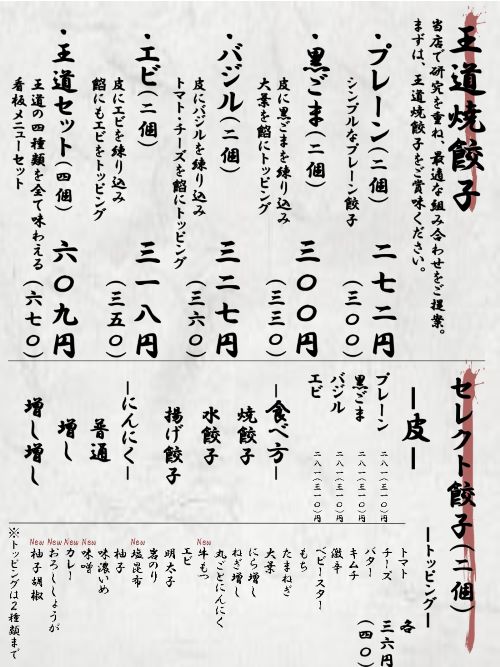 王道焼餃子
当店で研究を重ね、最適な組み合わせをご提案。
まずは、王道焼餃子をご賞味ください。
・プレーン(二個) 二七二円
シンプルなプレーン餃子 (三〇〇)
・黒ごま(二個) 三〇〇円
皮に黒ごまを練り込み (三三〇)
大葉を餡にトッピング
・バジル(二個) 三二七円
皮にバジルを練り込み (三六〇)
トマト・チーズを餡にトッピング
・エビ(二個) 三一八円
皮にエビを練り込み (三五〇)
餡にもエビをトッピング
・王道セット(四個) 六〇九円
王道の四種類を全て味わえる (六七〇)
看板メニューセット
セレクト餃子(二個)
ー皮ー
プレーン 二八一(三一〇)円
黒ごま 二八一(三一〇)円
バジル 二八一(三一〇)円
エビ 二八一(三一〇)円
ー食べ方ー
焼餃子
水餃子
揚げ餃子
ーにんにくー
普通
増し
増し増し
ートッピングー
各 三六円
(四〇)
トマト
チーズ
バター
キムチ
激辛
ベビースター
もち
たまねぎ
大葉
にら増し
ねぎ増し
丸ごとにんにく
New 牛もつ
エビ
明太子
岩のり
New 塩昆布
柚子
味濃いめ
New 味噌
New カレー
New おろししょうが
New 柚子胡椒
※トッピングは2種類まで